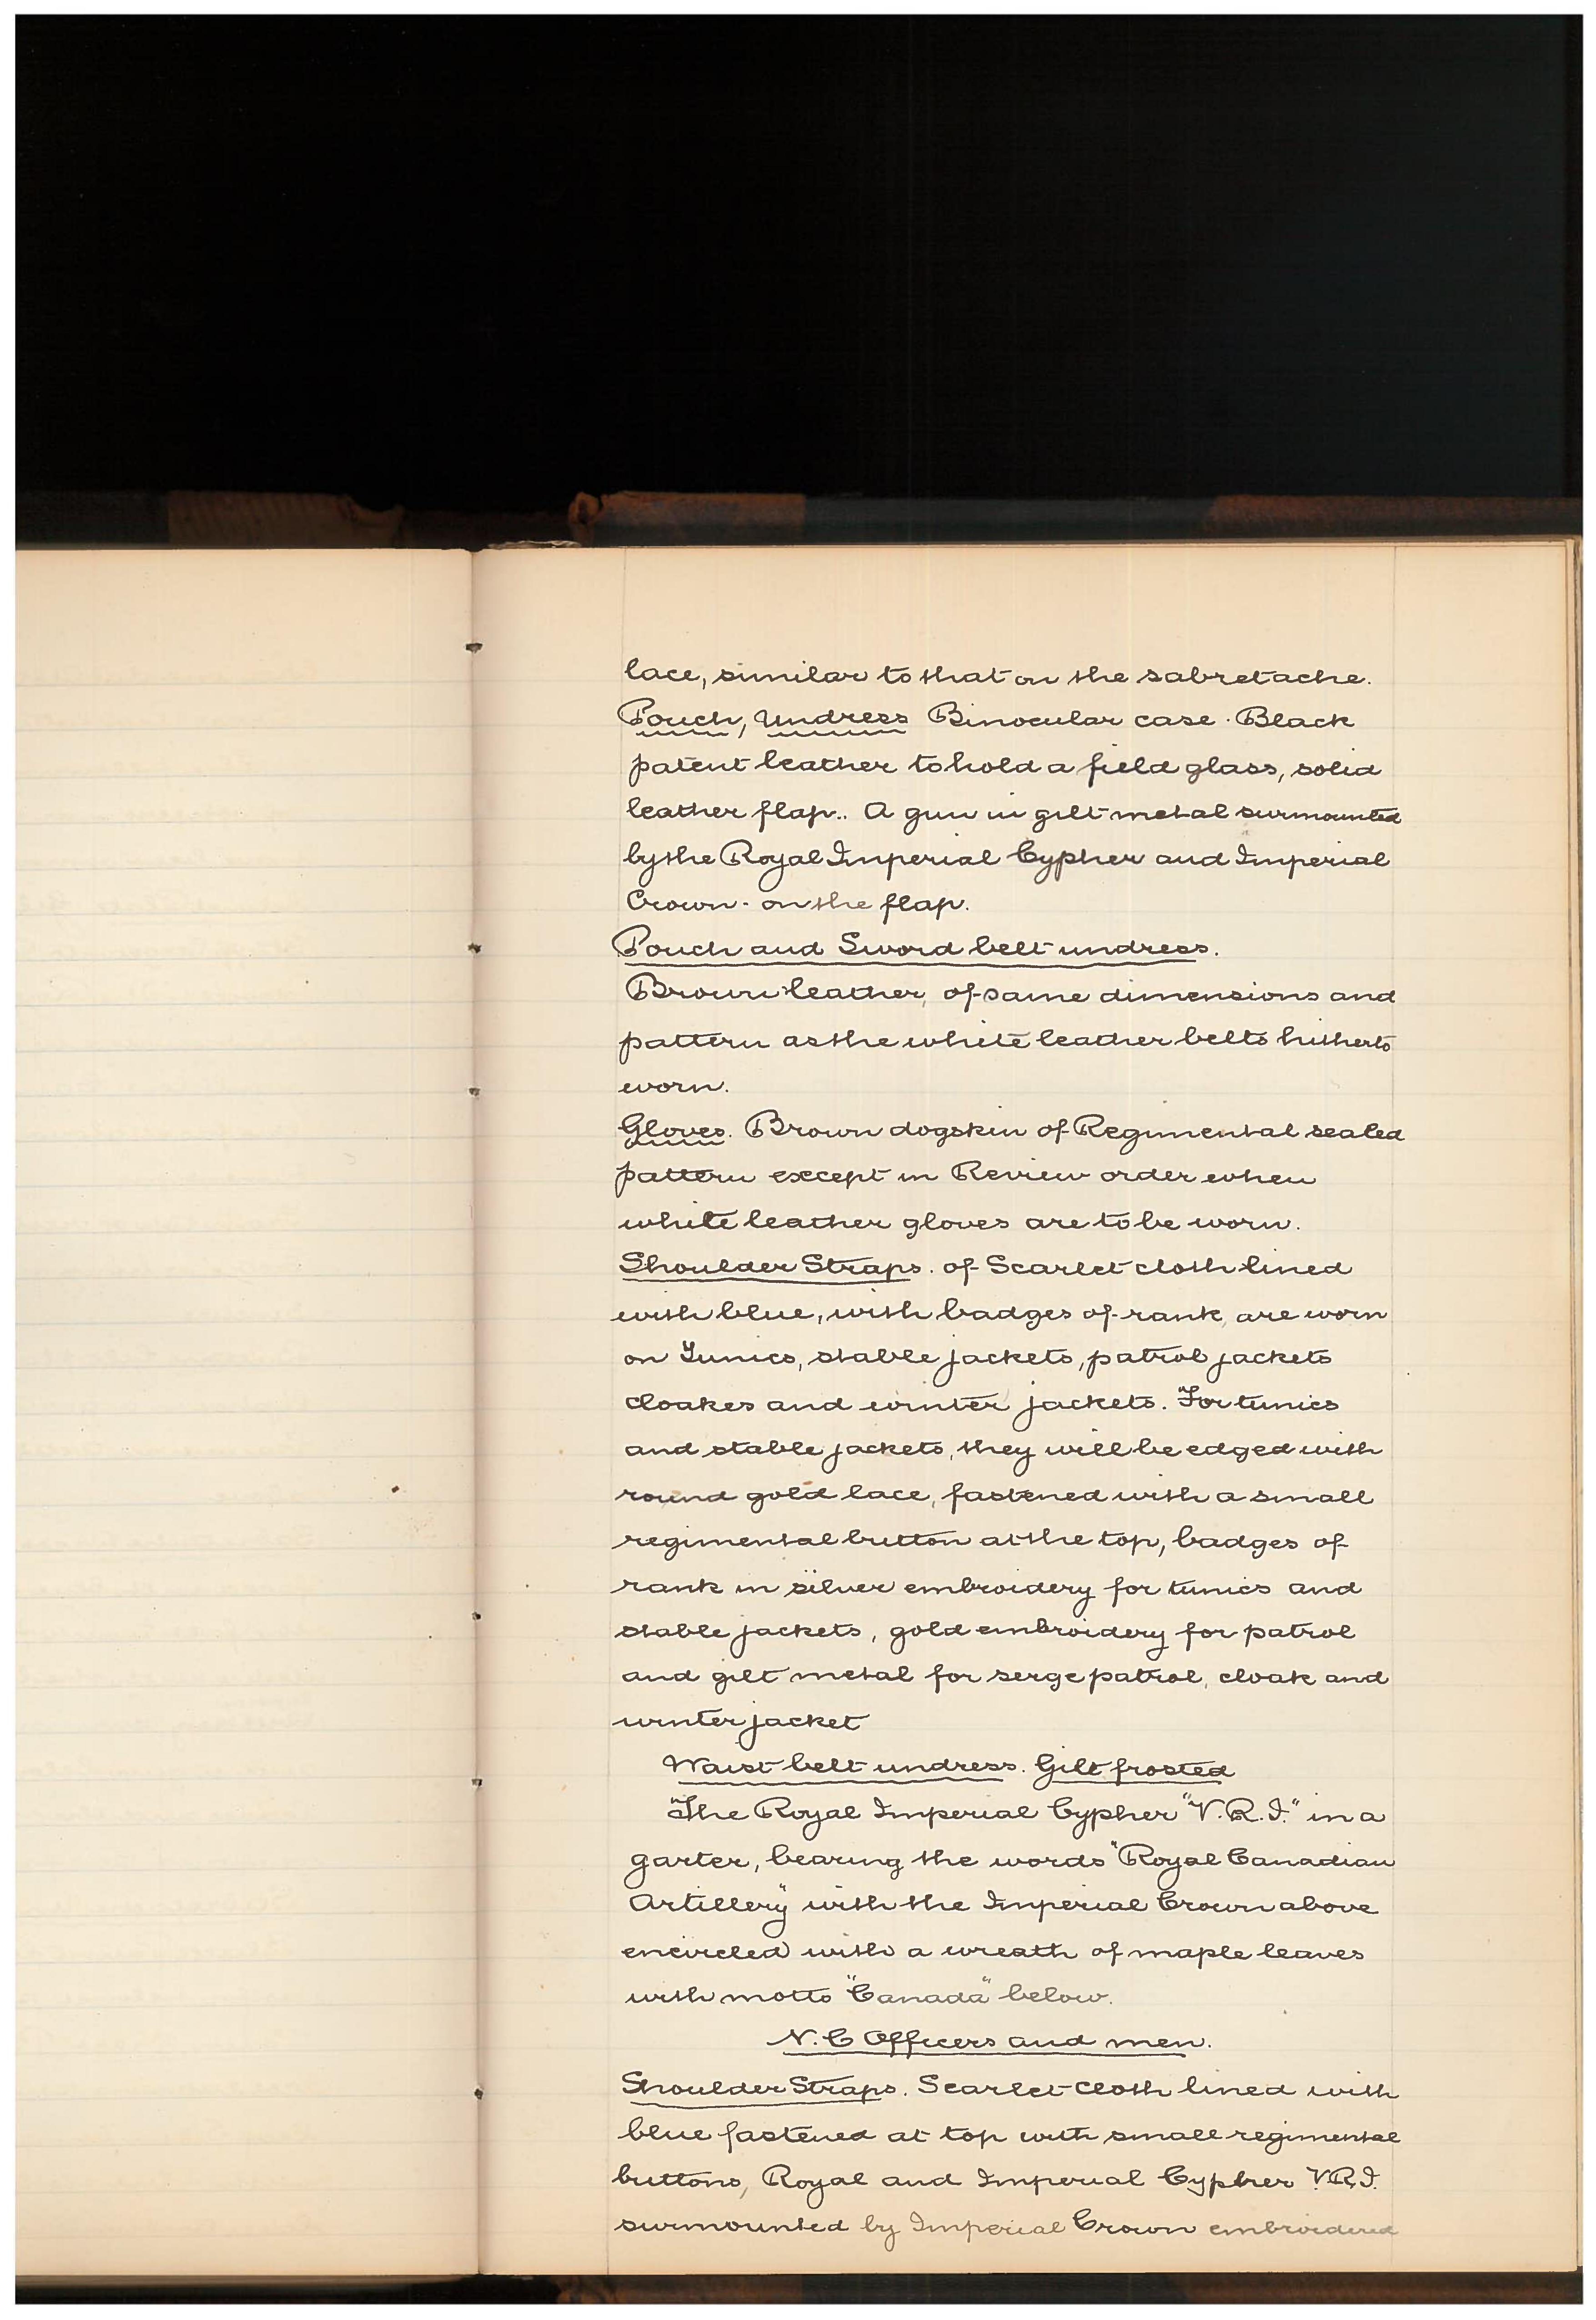 lace, similar to that on the sabretache.
Pouch, Undress Binocular case. Black
patent leather to hold a field glass, solid
leather flap.. A gun in gilt metal surmounted
by the Royal Imperial Cypher and Imperial
Crown - on the flap.
Pouch and Sword belt undress.
Brown leather, of same dimensions and
pattern as the white leather belts hitherto
worn.
Gloves. Brown dogskin of Regimental sealed
pattern except in Review order when
white leather gloves are to be worn.
Shoulder Straps. of Scarlet cloth lined
with blue, with badges of rank, are worn
on Tunics, stable jackets, patrol jackets
cloakes and winter jackets. For tunics
and stable jackets, they will be edged with
round gold lace, fastened with a small
regimental button at the top, badges of
rank in silver embroidery for tunics and
stable jackets, gold embroidery for patrol
and gilt metal for serge patrol, cloak and
winter jacket
Waist belt undress. Gilt frosted
"The Royal Imperial Cypher "V.R.I." in a
garter, bearing the words "Royal Canadian
Artillery" with the Imperial Crown above
encircled with a wreath of maple leaves
with motto "Canada" below.
N.C Officers and men.
Shoulder Straps. Scarlet cloth lined with
blue fastened at top with small regimental
buttons, Royal and Imperial Cypher V.R.I.
surmounted by Imperial Crown embroidered